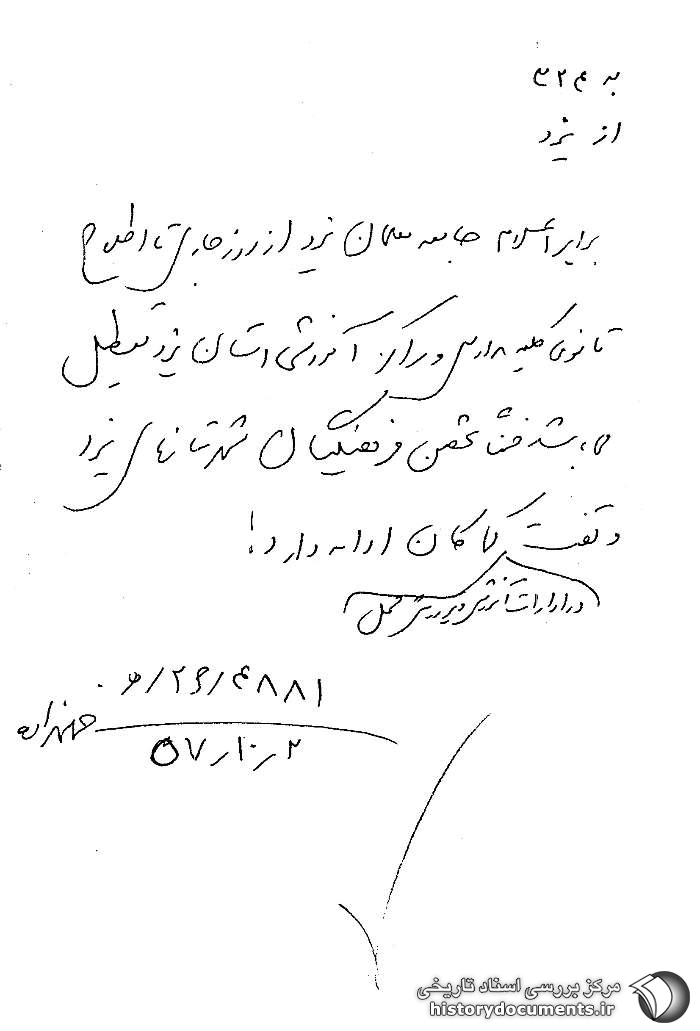 به ۳۲۴
از یزد
برابر اعلام جامعه معلمان یزد از روز جاری تا اطلاع
ثانوی کلیه مدارس و مراکز آموزشی استان یزد تعطیل
می باشد ضمناً تحصن فرهنگیان شهرستانهای یزد
و تفت کماکان ادامه دارد!
در ادارات آموزش و پرورش محل
۴۸۸۱
۵۷ر۱۰ر۲
مرکز بررسی اسناد تاریخی
historydocuments.ir